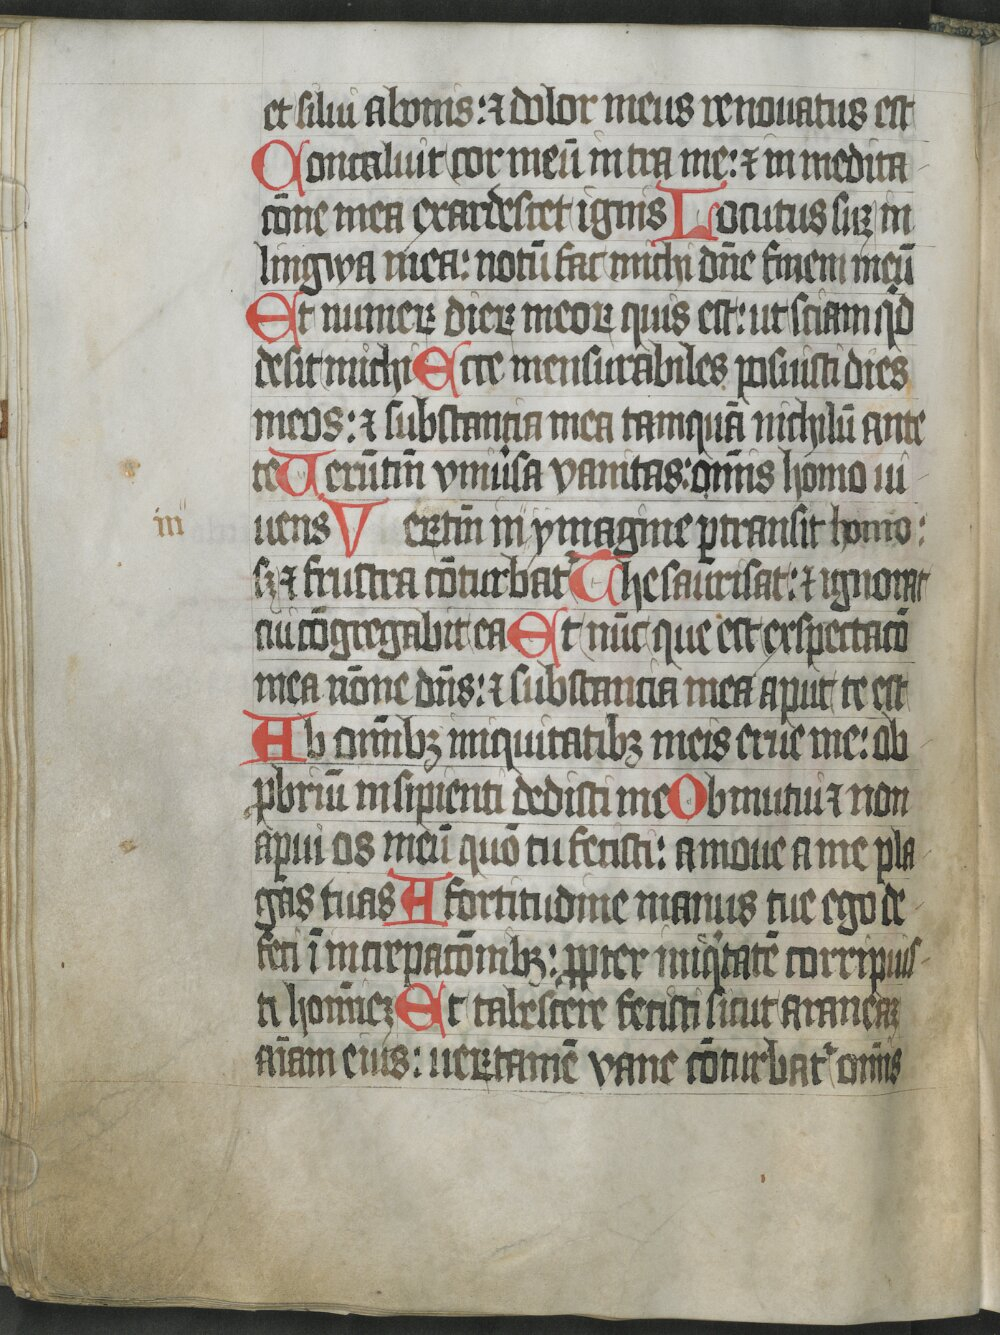 et silui a bonis: ⁊ dolor meus renouatus est
Concaluit cor meū intra me: ⁊ in medita
cōne mea exardescet ignis Locutus suꝫ in
lingwa mea: notū fac michi dn̄e finem meū
Et numeꝝ dieꝝ meoꝝ quis est: ut sciam qͥd
desit michi Ecce mensurabiles posuisti dies
meos: ⁊ substancia mea tamquā nichilū ante
te Uerūtn̄ vniu͛sa vanitas: om̄is homo ui
in uens Veꝝtn̄ in ymagine ꝑtransit homo:
sꝫ ⁊ frustra cōturbat᷑ Thesaurisat: ⁊ ignorat
cui cōgregabit ea Et nūc que est exspectacō
mea nōne dn̄s: ⁊ substancia mea aput te est
Ab om̄ibꝫ iniquitatibꝫ meis erue me: ob
ꝓbriū insipienti dedisti me Obmutui ⁊ non
apui os meū quō tu fecisti: amoue a me pla
gas tuas A fortitudine manus tue ego de
feci ī increpacōnibꝫ: ꝓpter iniqͥtatē corripuis
ti hom̄ieꝫ Et tabescere fecisti sicut araneaꝫ
aīam eius: ueꝝtamē vane cōturbat᷑ om̄is